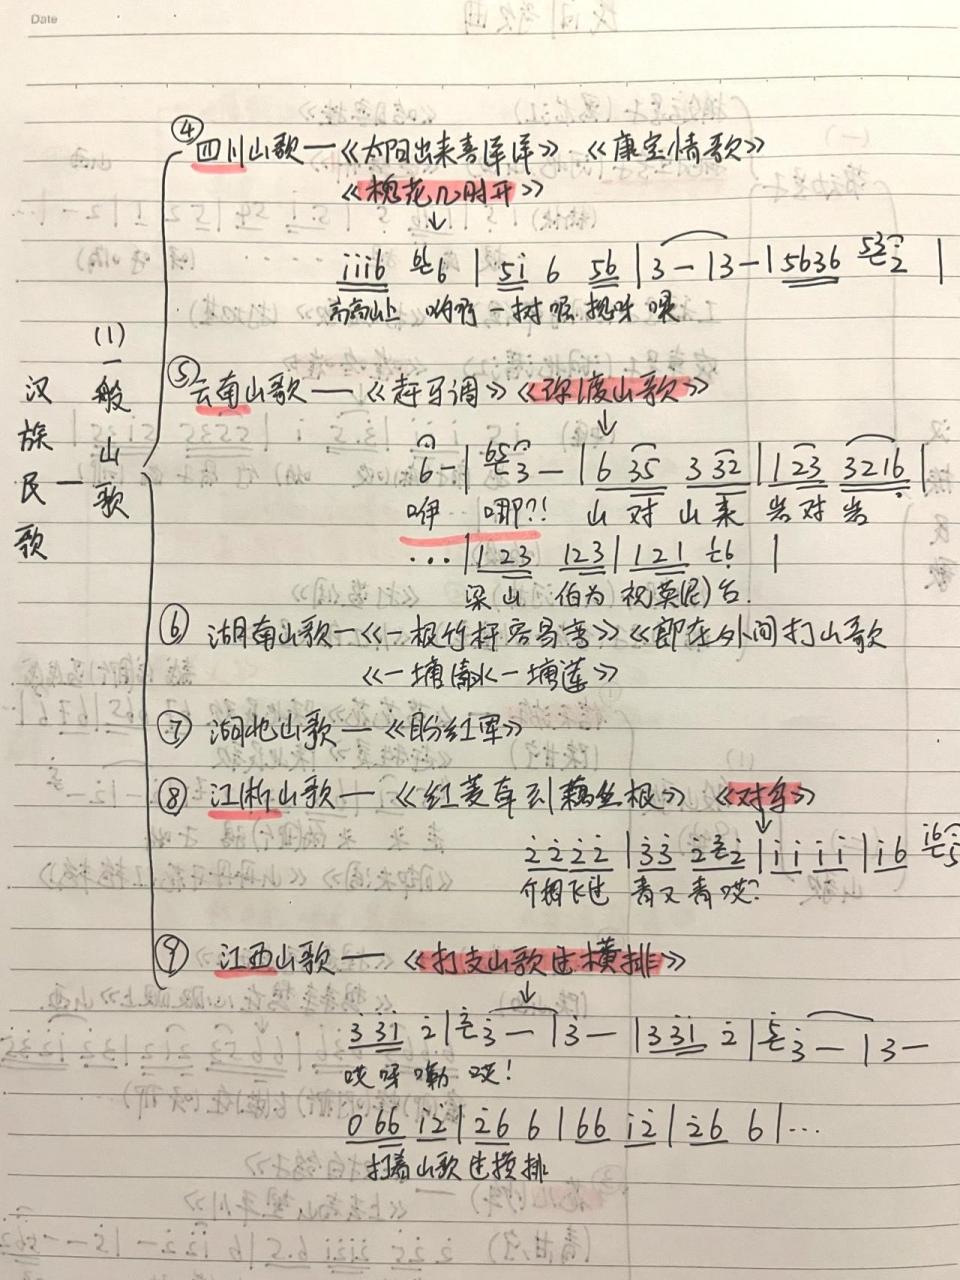 Date
④ 四川山歌—《太阳出来喜洋洋》 《康定情歌》
《槐花几时开》
↓
i i i 6 6 6 | 5 i 6 5 6 | 3 — | 3 — | 5 6 3 6 5 3 2 |
高高山上 哟呀 一树呃 槐呀 槐
(1) 一般山歌
汉族民歌—
⑤ 云南山歌—《赶马调》《弥渡山歌》
↓
6 — | 6 5 3 — | 6 3 5 3 3 2 | 1 2 3 3 2 1 6 |
咿 哪?! 山对山来 岩对岩
… | 1 2 3 1 2 3 | 1 2 1 6 |
梁山 伯为 祝英(尼)台.
⑥ 湖南山歌—《一根竹杆容易弯》《郎在外间打山歌
《一塘清水一塘莲》
⑦ 湖北山歌—《盼红军》
⑧ 江浙山歌—《红菱牵到藕丝根》 《对鸟》
↓
2 2 2 2 | 3 3 2 2 2 | i i i i | i 6 i 6 5
介相飞过 青又青哎?
⑨ 江西山歌—《打支山歌过横排》
↓
3 3 1 2 | 5 3 — | 3 — | 3 3 1 2 | 5 3 — | 3 —
哎呀嘞 哎!
0 6 6 i 2 | 2 6 6 | 6 6 i 2 | 2 6 6 | …
打着山歌过横排